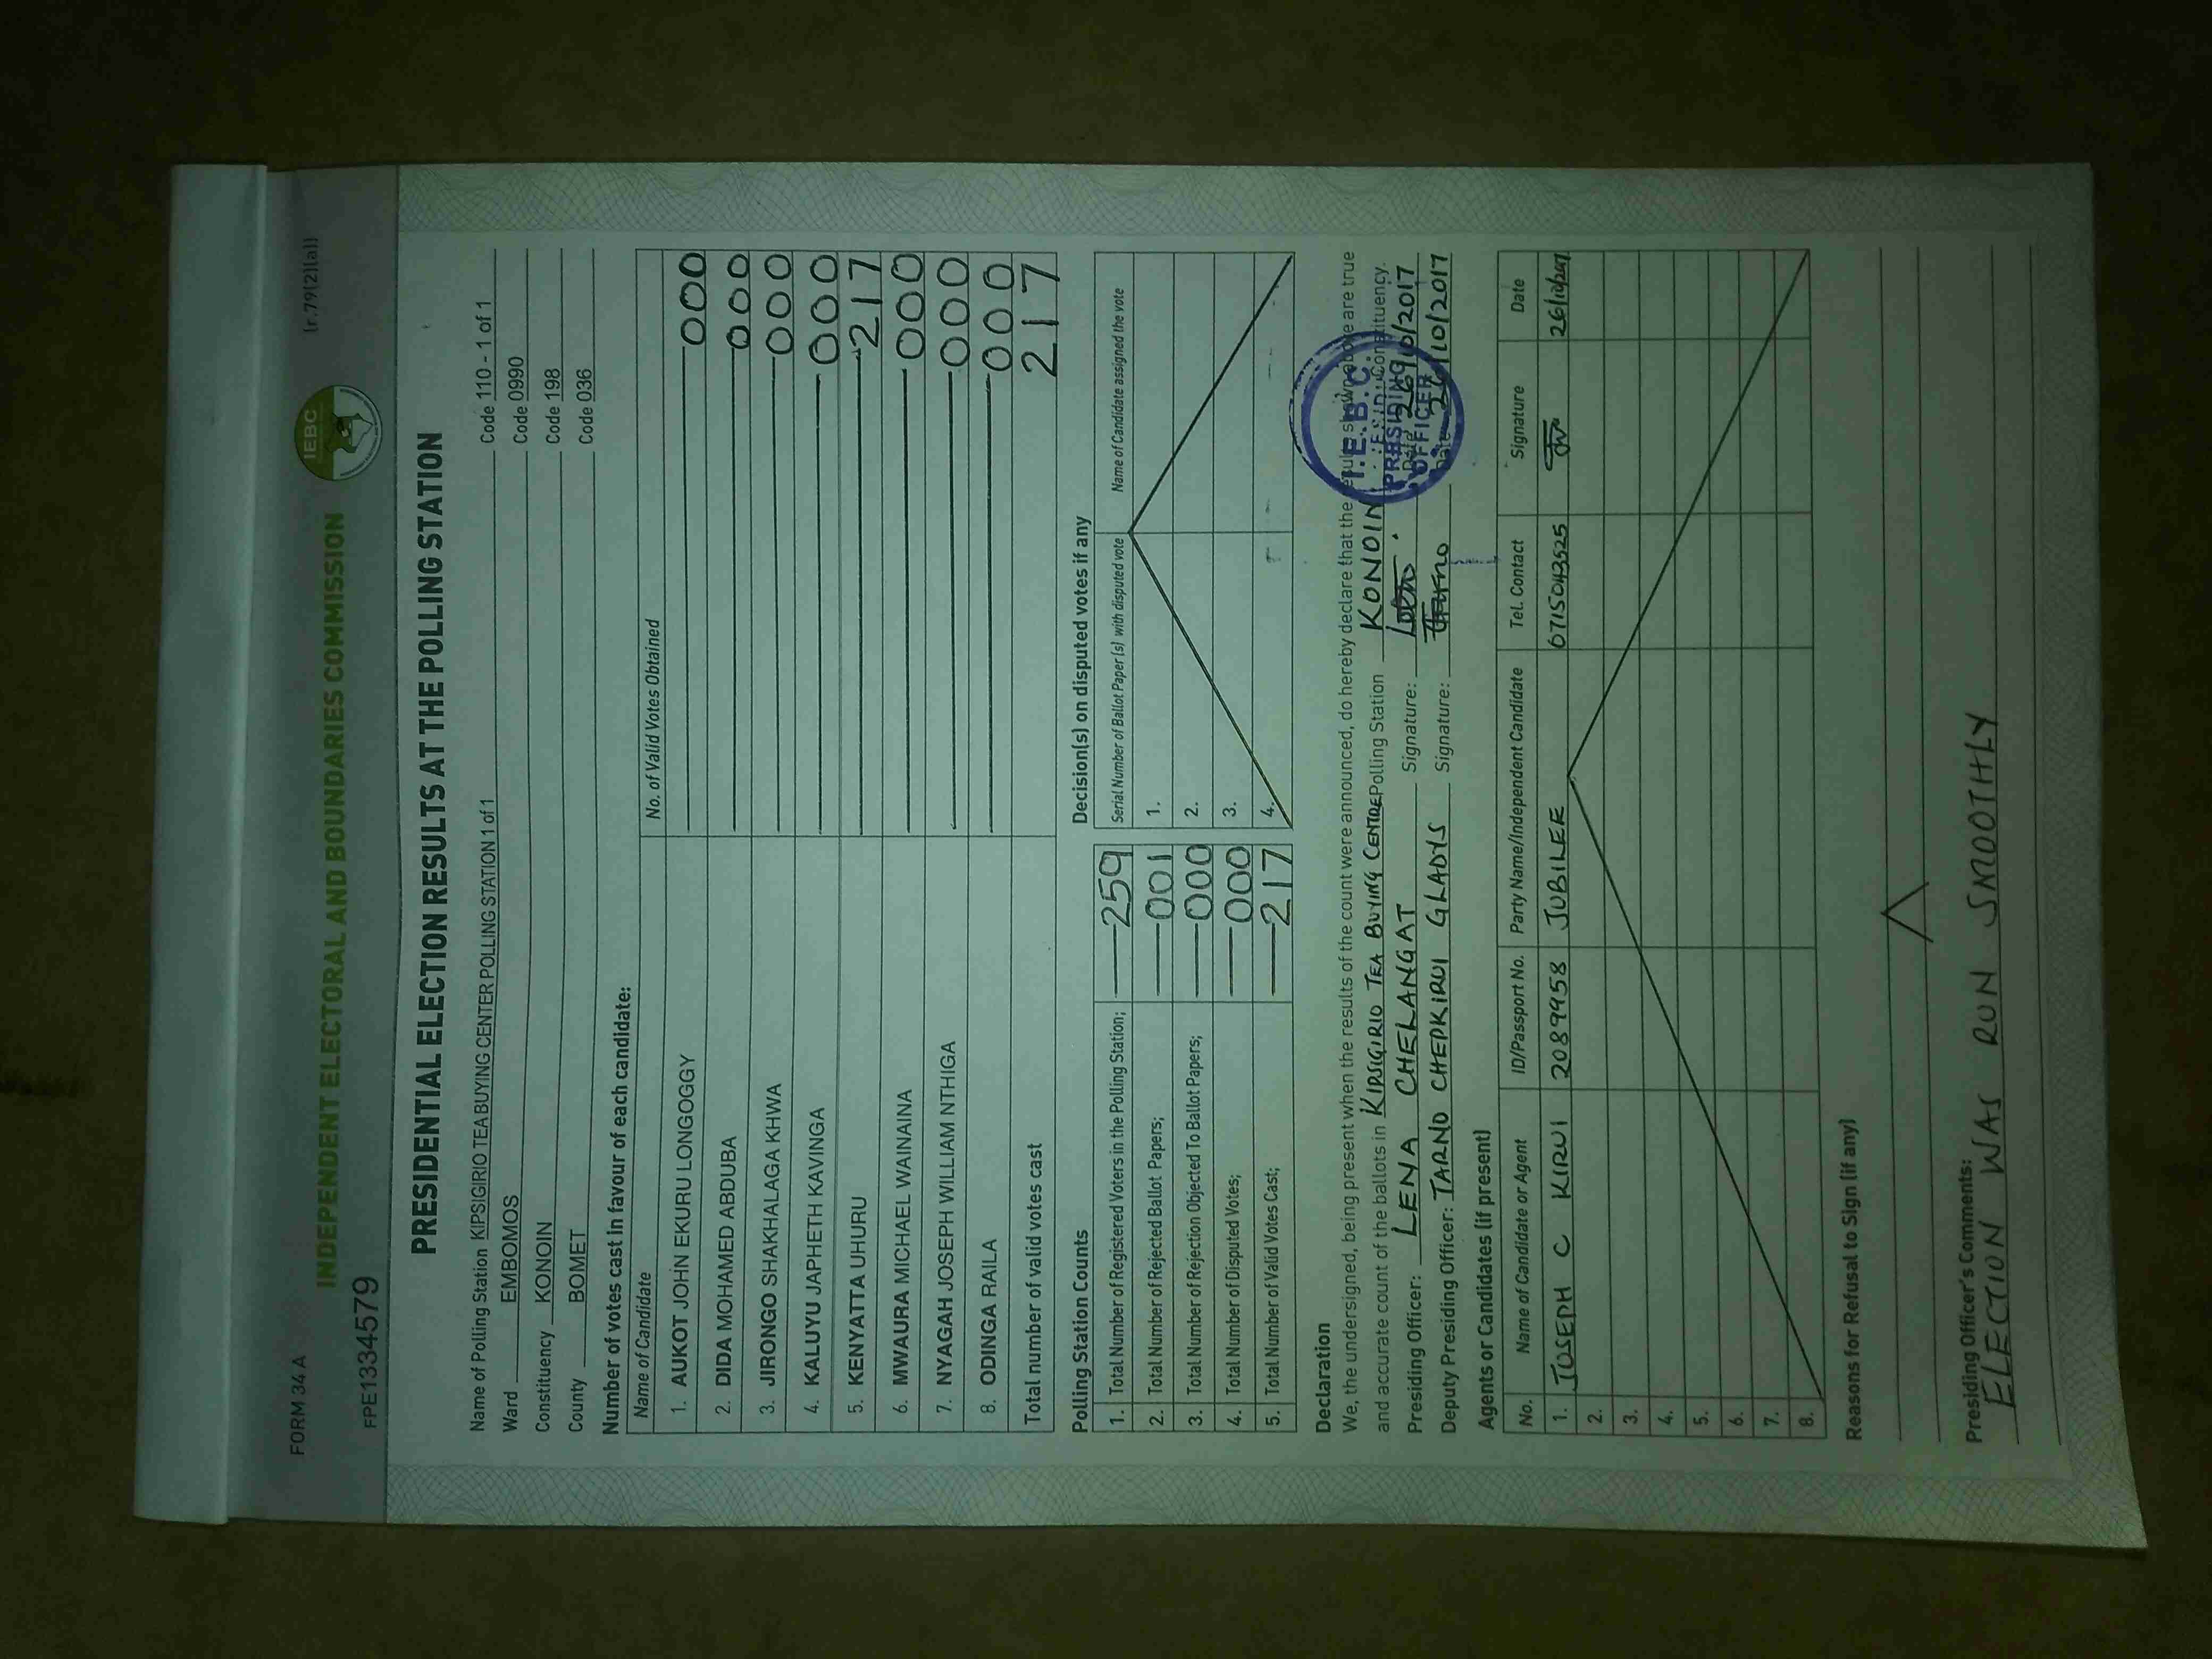 FORM 34 A
(r.79(2)(a))
INDEPENDENT ELECTORAL AND BOUNDARIES COMMISSION
IEBC
FPE1334579
PRESIDENTIAL ELECTION RESULTS AT THE POLLING STATION
Name of Polling Station KIPSIGIRIO TEA BUYING CENTER POLLING STATION 1 of 1 Code 110 - 1 of 1
Ward EMBOMOS Code 0990
Constituency KONOIN Code 198
County BOMET Code 036
Number of votes cast in favour of each candidate:
Name of Candidate No. of Valid Votes Obtained
1. AUKOT JOHN EKURU LONGOGGY 000
2. DIDA MOHAMED ABDUBA 000
3. JIRONGO SHAKHALAGA KHWA 000
4. KALUYU JAPHETH KAVINGA 000
5. KENYATTA UHURU 217
6. MWAURA MICHAEL WAINAINA 000
7. NYAGAH JOSEPH WILLIAM NTHIGA 000
8. ODINGA RAILA 000
Total number of valid votes cast 217
Polling Station Counts
1. Total Number of Registered Voters in the Polling Station; 259
2. Total Number of Rejected Ballot Papers; 001
3. Total Number of Rejection Objected To Ballot Papers; 000
4. Total Number of Disputed Votes; 000
5. Total Number of Valid Votes Cast; 217
Decision(s) on disputed votes if any
Serial Number of Ballot Paper (s) with disputed vote Name of Candidate assigned the vote
1.
2.
3.
4.
Declaration
We, the undersigned, being present when the results of the count were announced, do hereby declare that the results shown above are true
and accurate count of the ballots in KIPSIGIRIO TEA BUYING CENTRE Polling Station KONOIN Constituency.
Presiding Officer: LENA CHELANGAT Signature: Date 26/10/2017
Deputy Presiding Officer: TARNO CHEPKIRUI GLADYS Signature: Date 26/10/2017
I.E.B.C.
PRESIDING
OFFICER
Agents or Candidates (if present)
No. Name of Candidate or Agent ID/Passport No. Party Name/Independent Candidate Tel. Contact Signature Date
1. JOSEPH C KIRUI 20899958 JUBILEE 0715043525 26/10/2017
2.
3.
4.
5.
6.
7.
8.
Reasons for Refusal to Sign (if any)
Presiding Officer's Comments:
ELECTION WAS RUN SMOOTHLY